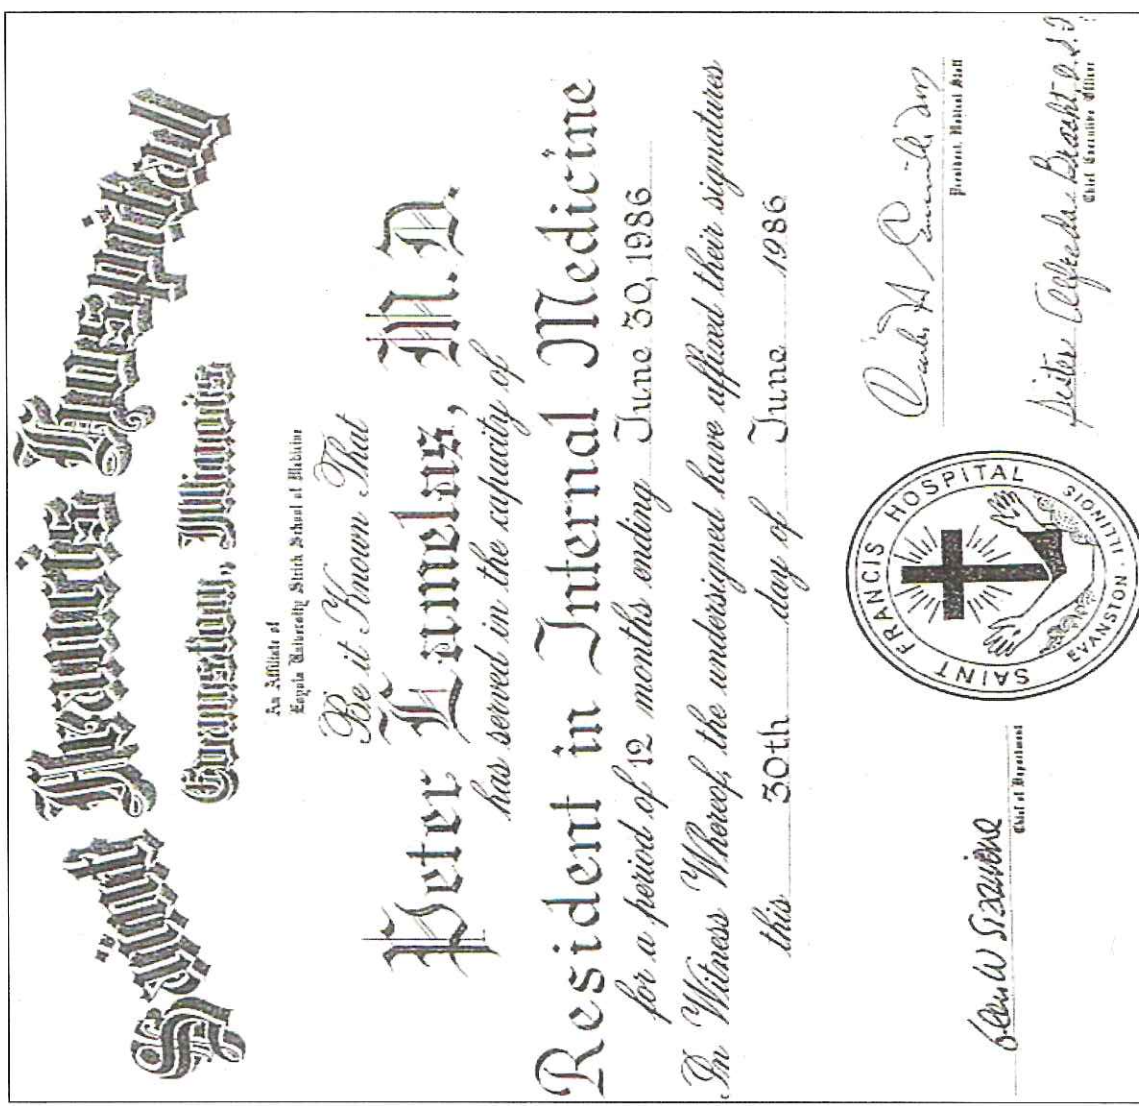 Saint Francis Hospital
Evanston, Illinois
An Affiliate of
Loyola University Stritch School of Medicine
Be it Known That
Peter Lamelas, M.D.
has served in the capacity of
Resident in Internal Medicine
for a period of 12 months ending June 30, 1986
In Witness Whereof, the undersigned have affixed their signatures
this 30th day of June 1986
Chief of Department
SAINT FRANCIS HOSPITAL
EVANSTON, ILLINOIS
President, Medical Staff
Sister Alfreda Bracht, O.S.F.
Chief Executive Officer